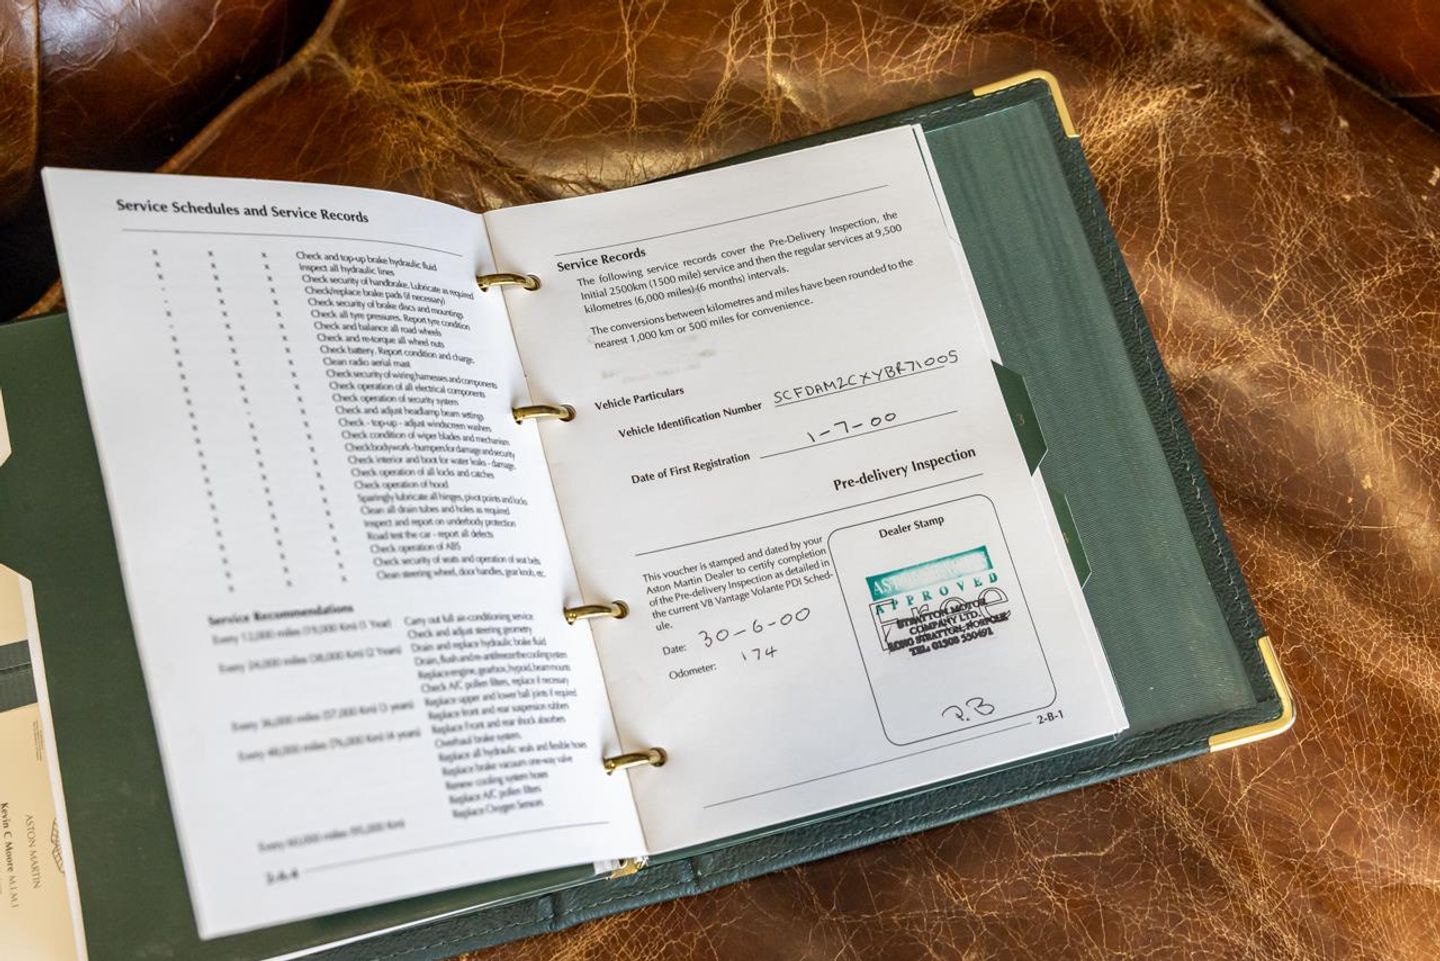 Service Schedules and Service Records
x x x Check and top-up brake hydraulic fluid
Inspect all hydraulic lines
Check security of handbrake. Lubricate as required
Check/replace brake pads (if necessary)
Check security of brake discs and mountings
Check all tyre pressures. Report tyre condition
Check and balance all road wheels
Check and re-torque all wheel nuts
Check battery. Report condition and charge.
Clean radio aerial mast
Check security of wiring harnesses and components
Check operation of all electrical components
Check operation of security system
Check and adjust headlamp beam settings
Check - top-up - adjust windscreen washers
Check condition of wiper blades and mechanism
Check bodywork - bumpers for damage and security
Check interior and boot for water leaks - damage.
Check operation of all locks and catches
Check operation of hood
Sparingly lubricate all hinges, pivot points and locks
Clean all drain tubes and holes as required
Inspect and report on underbody protection
Road test the car - report all defects
Check operation of ABS
Check security of seats and operation of seat belts
Clean steering wheel, door handles, gear knob, etc.
Service Recommendations
Every 12,000 miles (19,000 Km) (1 Year) Carry out full air-conditioning service
Check and adjust steering geometry
Every 24,000 miles (38,000 Km) (2 Years) Drain and replace hydraulic brake fluid
Drain, flush and re-antifreeze the cooling system
Replace engine, gearbox, hypoid, beam mounts
Check A/C pollen filters, replace if necessary
Every 36,000 miles (57,000 Km) (3 years) Replace upper and lower ball joints if required
Replace front and rear suspension rubbers
Every 48,000 miles (76,000 Km) (4 years) Replace Front and rear shock absorbers
Overhaul brake system.
Replace all hydraulic seals and flexible hoses
Replace brake vacuum one-way valve
Renew cooling system hoses
Replace A/C pollen filters
Every 60,000 miles (95,000 Km) Replace Oxygen Sensors
2-A-4
Service Records
The following service records cover the Pre-Delivery Inspection, the
Initial 2500km (1500 mile) service and then the regular services at 9,500
kilometres (6,000 miles)-(6 months) intervals.
The conversions between kilometres and miles have been rounded to the
nearest 1,000 km or 500 miles for convenience.
Vehicle Particulars
Vehicle Identification Number SCFDAM2CXYBR71005
Date of First Registration 1-7-00
Pre-delivery Inspection
This voucher is stamped and dated by your
Aston Martin Dealer to certify completion
of the Pre-delivery Inspection as detailed in
the current V8 Vantage Volante PDI Sched-
ule.
Date: 30-6-00
Odometer: 174
Dealer Stamp
APPROVED
STRATTON MOTOR
COMPANY LTD.
LONG STRATTON, NORFOLK
TEL: 01508 530491
P.B
2-B-1
ASTON MARTIN
Kevin C Moore M.I.M.I